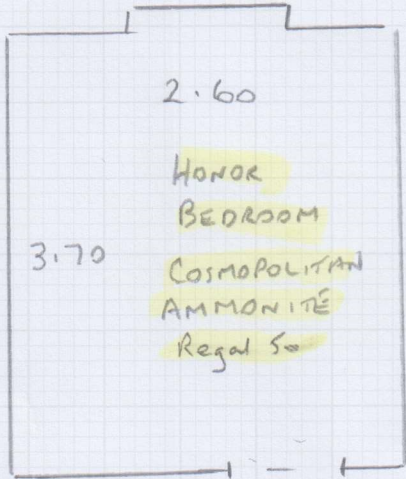 2.60
HONOR
BEDROOM
3.70
COSMOPOLITAN
AMMONITE
Regal 50